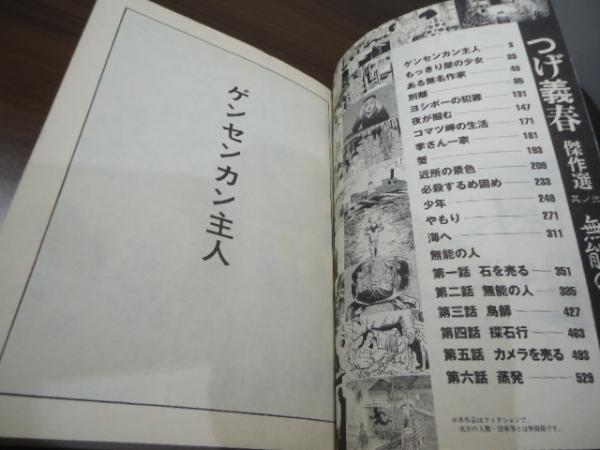 つげ義春
傑作選
其ノ弐
無能の
ゲンセンカン主人 3
もっきり屋の少女 33
ある無名作家 49
別離 85
ヨシボーの犯罪 131
夜が掴む 147
コマツ岬の生活 171
李さん一家 181
蟹 193
近所の景色 209
必殺するめ固め 233
少年 249
やもり 271
海へ 311
無能の人
第一話 石を売る 351
第二話 無能の人 385
第三話 鳥師 427
第四話 探石行 463
第五話 カメラを売る 493
第六話 蒸発 529
※本作品はフィクションで、
実在の人物・団体等とは無関係です。
ゲンセンカン主人